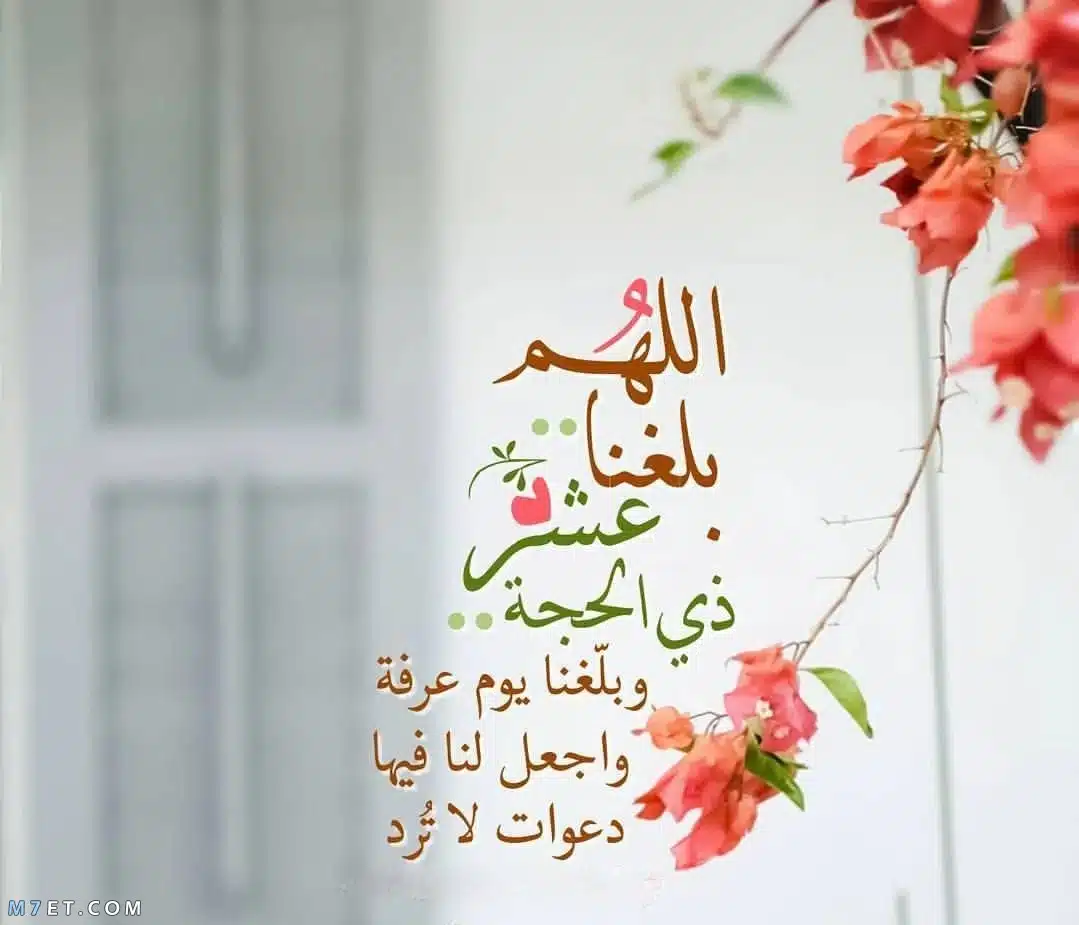 اللهُم
بلغنا..
عشر
ذي الحجة..
وبلّغنا يوم عرفة
واجعل لنا فيها
دعوات لا تُرد
M7ET.COM